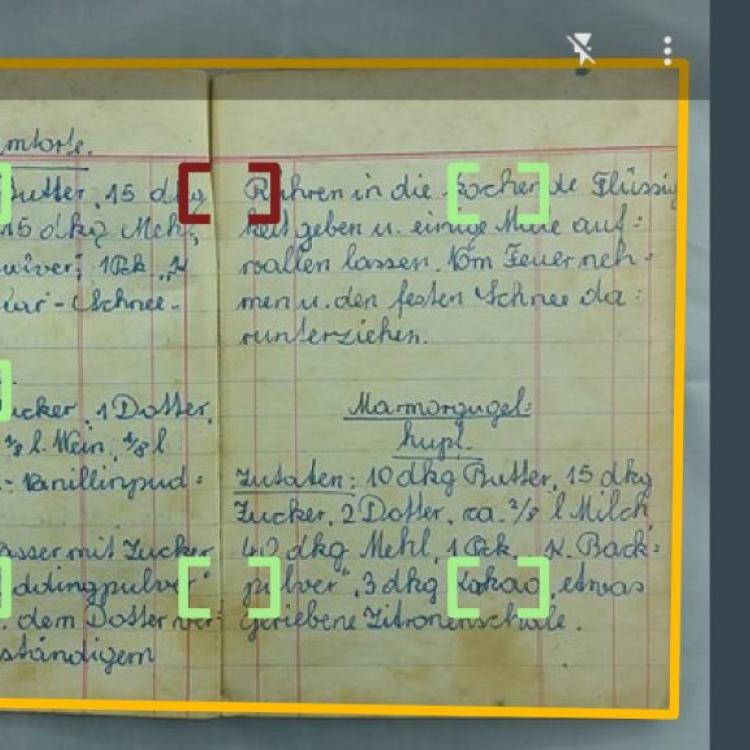 mtorte.
Butter, 15 dkg
15 dkg Mehl,
1 Pck. „
Schnee-
ucker, 1 Dotter,
1/8 l. Wein, 1/8 l
- Vanillinpud=
asser mit Zucker
ddingpulver"
. dem Dotter ver=
ständigem
Rühren in die kochende Flüssig
keit geben u. einige Male auf=
wallen lassen. Vom Feuer neh=
men u. den festen Schnee da=
runterziehen.
Marmorgugel=
hupf.
Zutaten: 10 dkg Butter, 15 dkg
Zucker, 2 Dotter, ca. 2/8 l Milch,
40 dkg Mehl, 1 Pck. „K. Back=
pulver", 3 dkg Kakao, etwas
geriebene Zitronenschale.